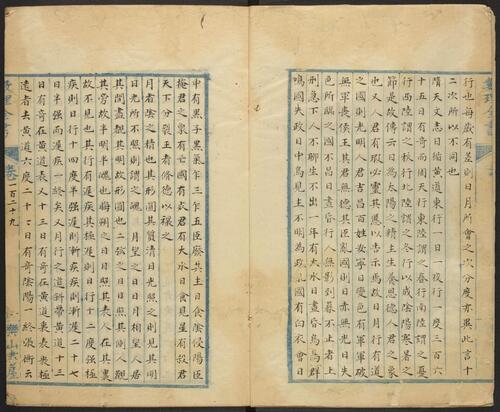 行也每歲有差則日月所會之次分度亦異此言十
二次所以不同也
隋天文志日循黃道東行一日一夜行一度三百六
十五日有奇而周天行東陸謂之春行南陸謂之夏
行西陸謂之秋行北陸謂之冬行以成陰陽寒暑之
節是故傳云日為太陽之精主生養恩德人君之象
也又人君有瑕必露其慝以告示焉故日月行有道
之國則光明人君吉昌百姓安寧日變色有軍軍破
無軍喪侯王其君無德其臣亂國則日赤無光日失
色所臨之國不昌日晝昏行人無影到暮不止者上
刑急下人不聊生不出一年有大水日晝昏烏鳥群
鳴國失政日中烏見主不明為政亂國有白衣會日
中有黑子黑氣乍三乍五臣廢其主日食陰侵陽臣
掩君之象有亡國有喪君有大水日食見星有殺君
天下分裂王者修德以禳之
月者陰之精也其形圓其質清日光照之則見其明
日光所不照則謂之魄月望之日日月相望人居
其間盡覩其明故形圓也二弦之日日照其側人觀
其旁故半明半魄也晦朔之日日照其表人在其裏
故不見也其行有遲疾其極遲則日行十二度強極
疾則日行十四度半強遲則漸疾疾則漸遲二十七
日半強而遲疾一終矣又月行之道斜帶黃道十三
日有奇在黃道表又十三日有奇在黃道裏表裏極
遠者去黃道六度二十七日有奇陰陽一終張衡云
理全書
卷一百二十九